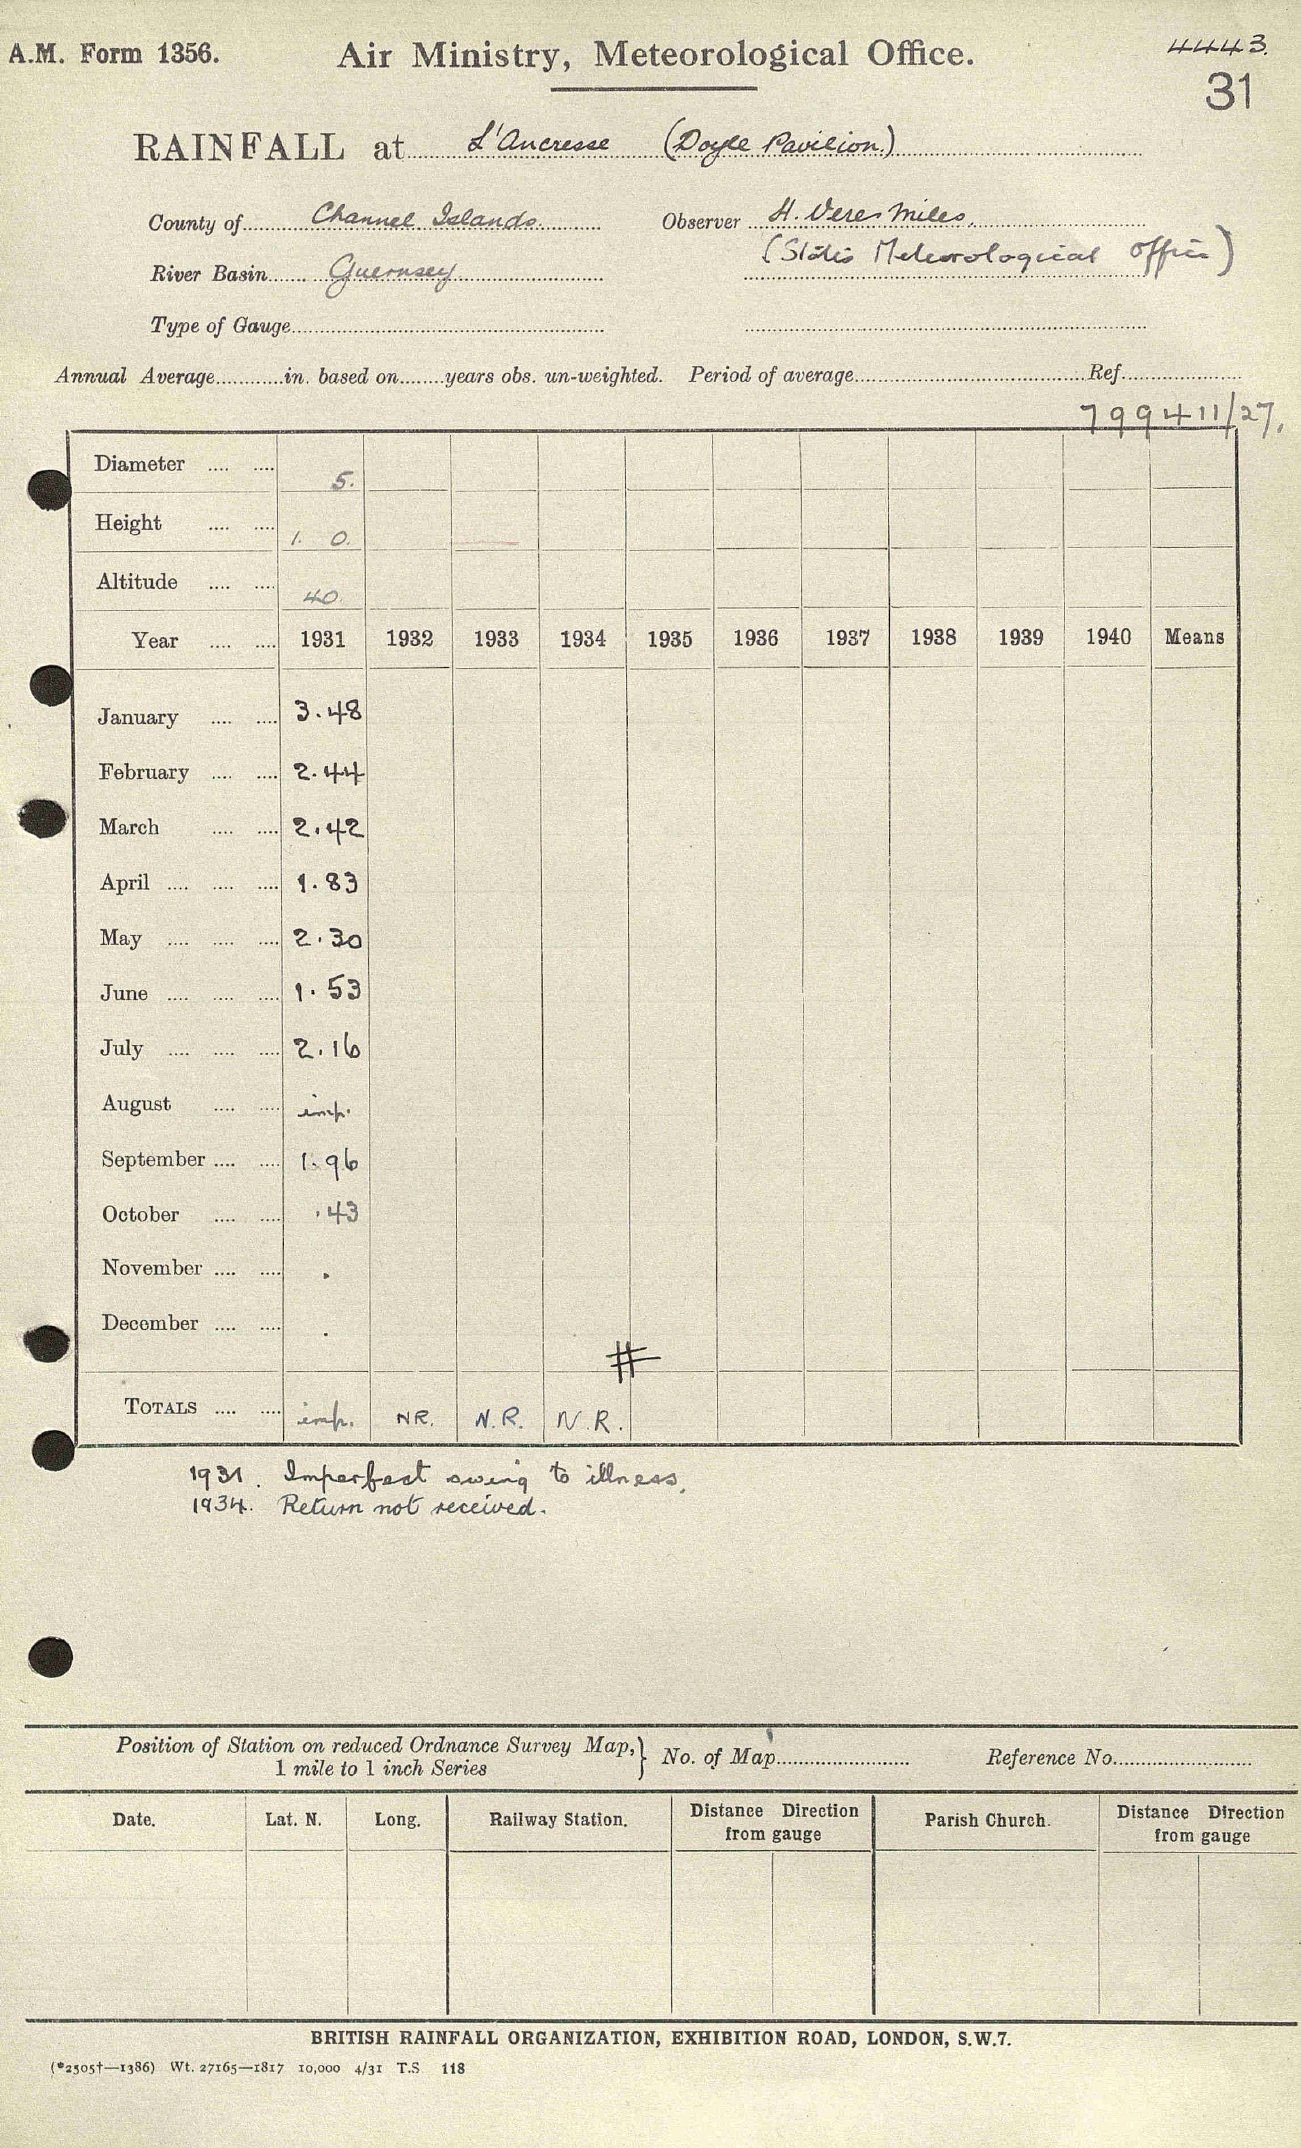 A.M. Form 1356. Air Ministry, Meteorological Office. 4443.
31
RAINFALL at L'Ancresse (Doyle Pavilion.)
County of Channel Islands. Observer H. Veres Miles.
River Basin Guernsey (States Meteorological Office)
Type of Gauge
Annual Average in. based on years obs. un-weighted. Period of average Ref.
799411/27.
Diameter .... .... 5.
Height .... .... 1. 0.
Altitude .... .... 40.
Year .... .... 1931 1932 1933 1934 1935 1936 1937 1938 1939 1940 Means
January .... .... 3.48
February .... .... 2.44
March .... .... 2.42
April .... .... .... 1.83
May .... .... .... 2.30
June .... .... .... 1.53
July .... .... .... 2.16
August .... .... imp.
September .... .... 1.96
October .... .... .43
November .... .... .
December .... .... .
#
TOTALS .... .... imp. NR. N.R. N.R.
1931. Imperfect owing to illness.
1934. Return not received.
Position of Station on reduced Ordnance Survey Map, } No. of Map Reference No.
1 mile to 1 inch Series
Date. Lat. N. Long. Railway Station. Distance Direction from gauge Parish Church. Distance Direction from gauge
BRITISH RAINFALL ORGANIZATION, EXHIBITION ROAD, LONDON, S.W.7.
(*2505†—1386) Wt. 27165—1817 10,000 4/31 T.S 118